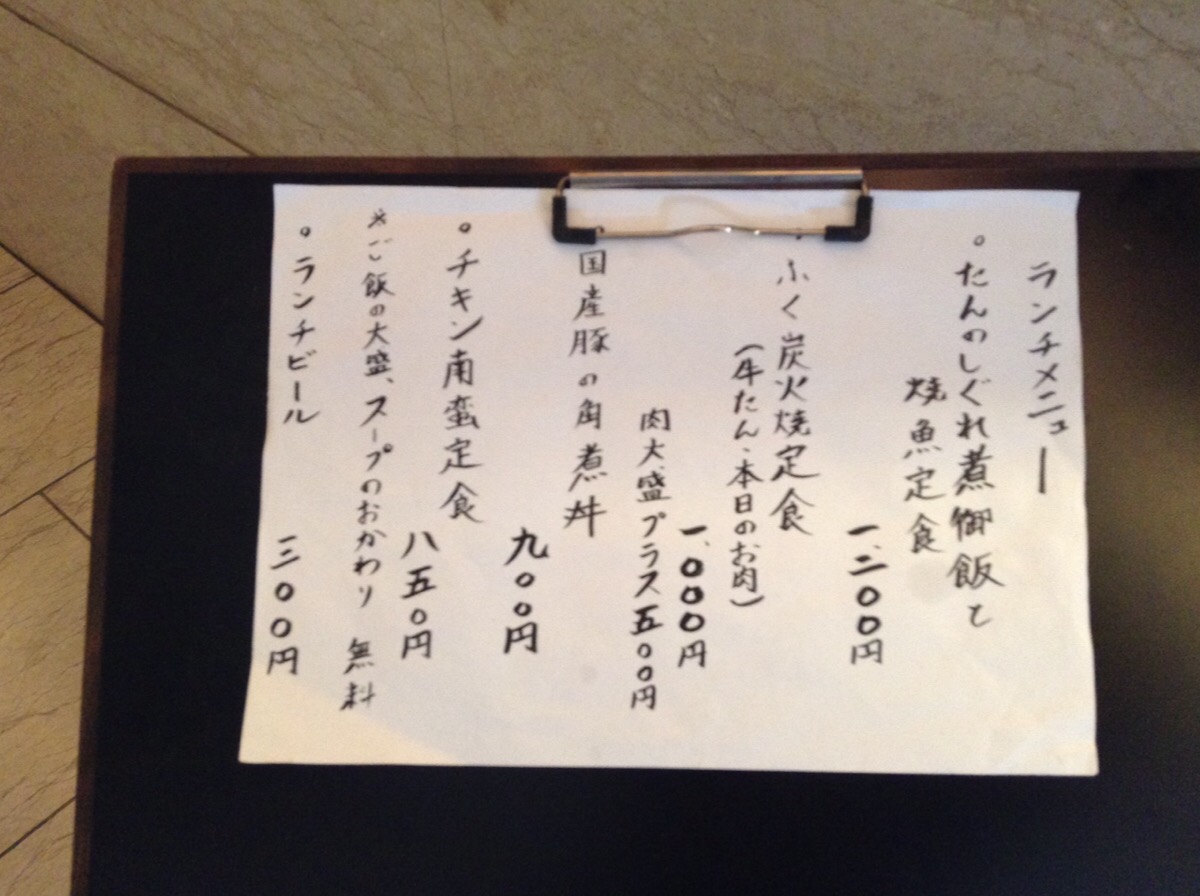 ランチメニュー
。たんのしぐれ煮御飯と
焼魚定食
一、二〇〇円
ふく炭火焼定食
(牛たん、本日のお肉)
一、〇〇〇円
肉大盛プラス五〇〇円
国産豚の角煮丼
九〇〇円
。チキン南蛮定食
八五〇円
※ご飯の大盛、スープのおかわり 無料
。ランチビール
三〇〇円